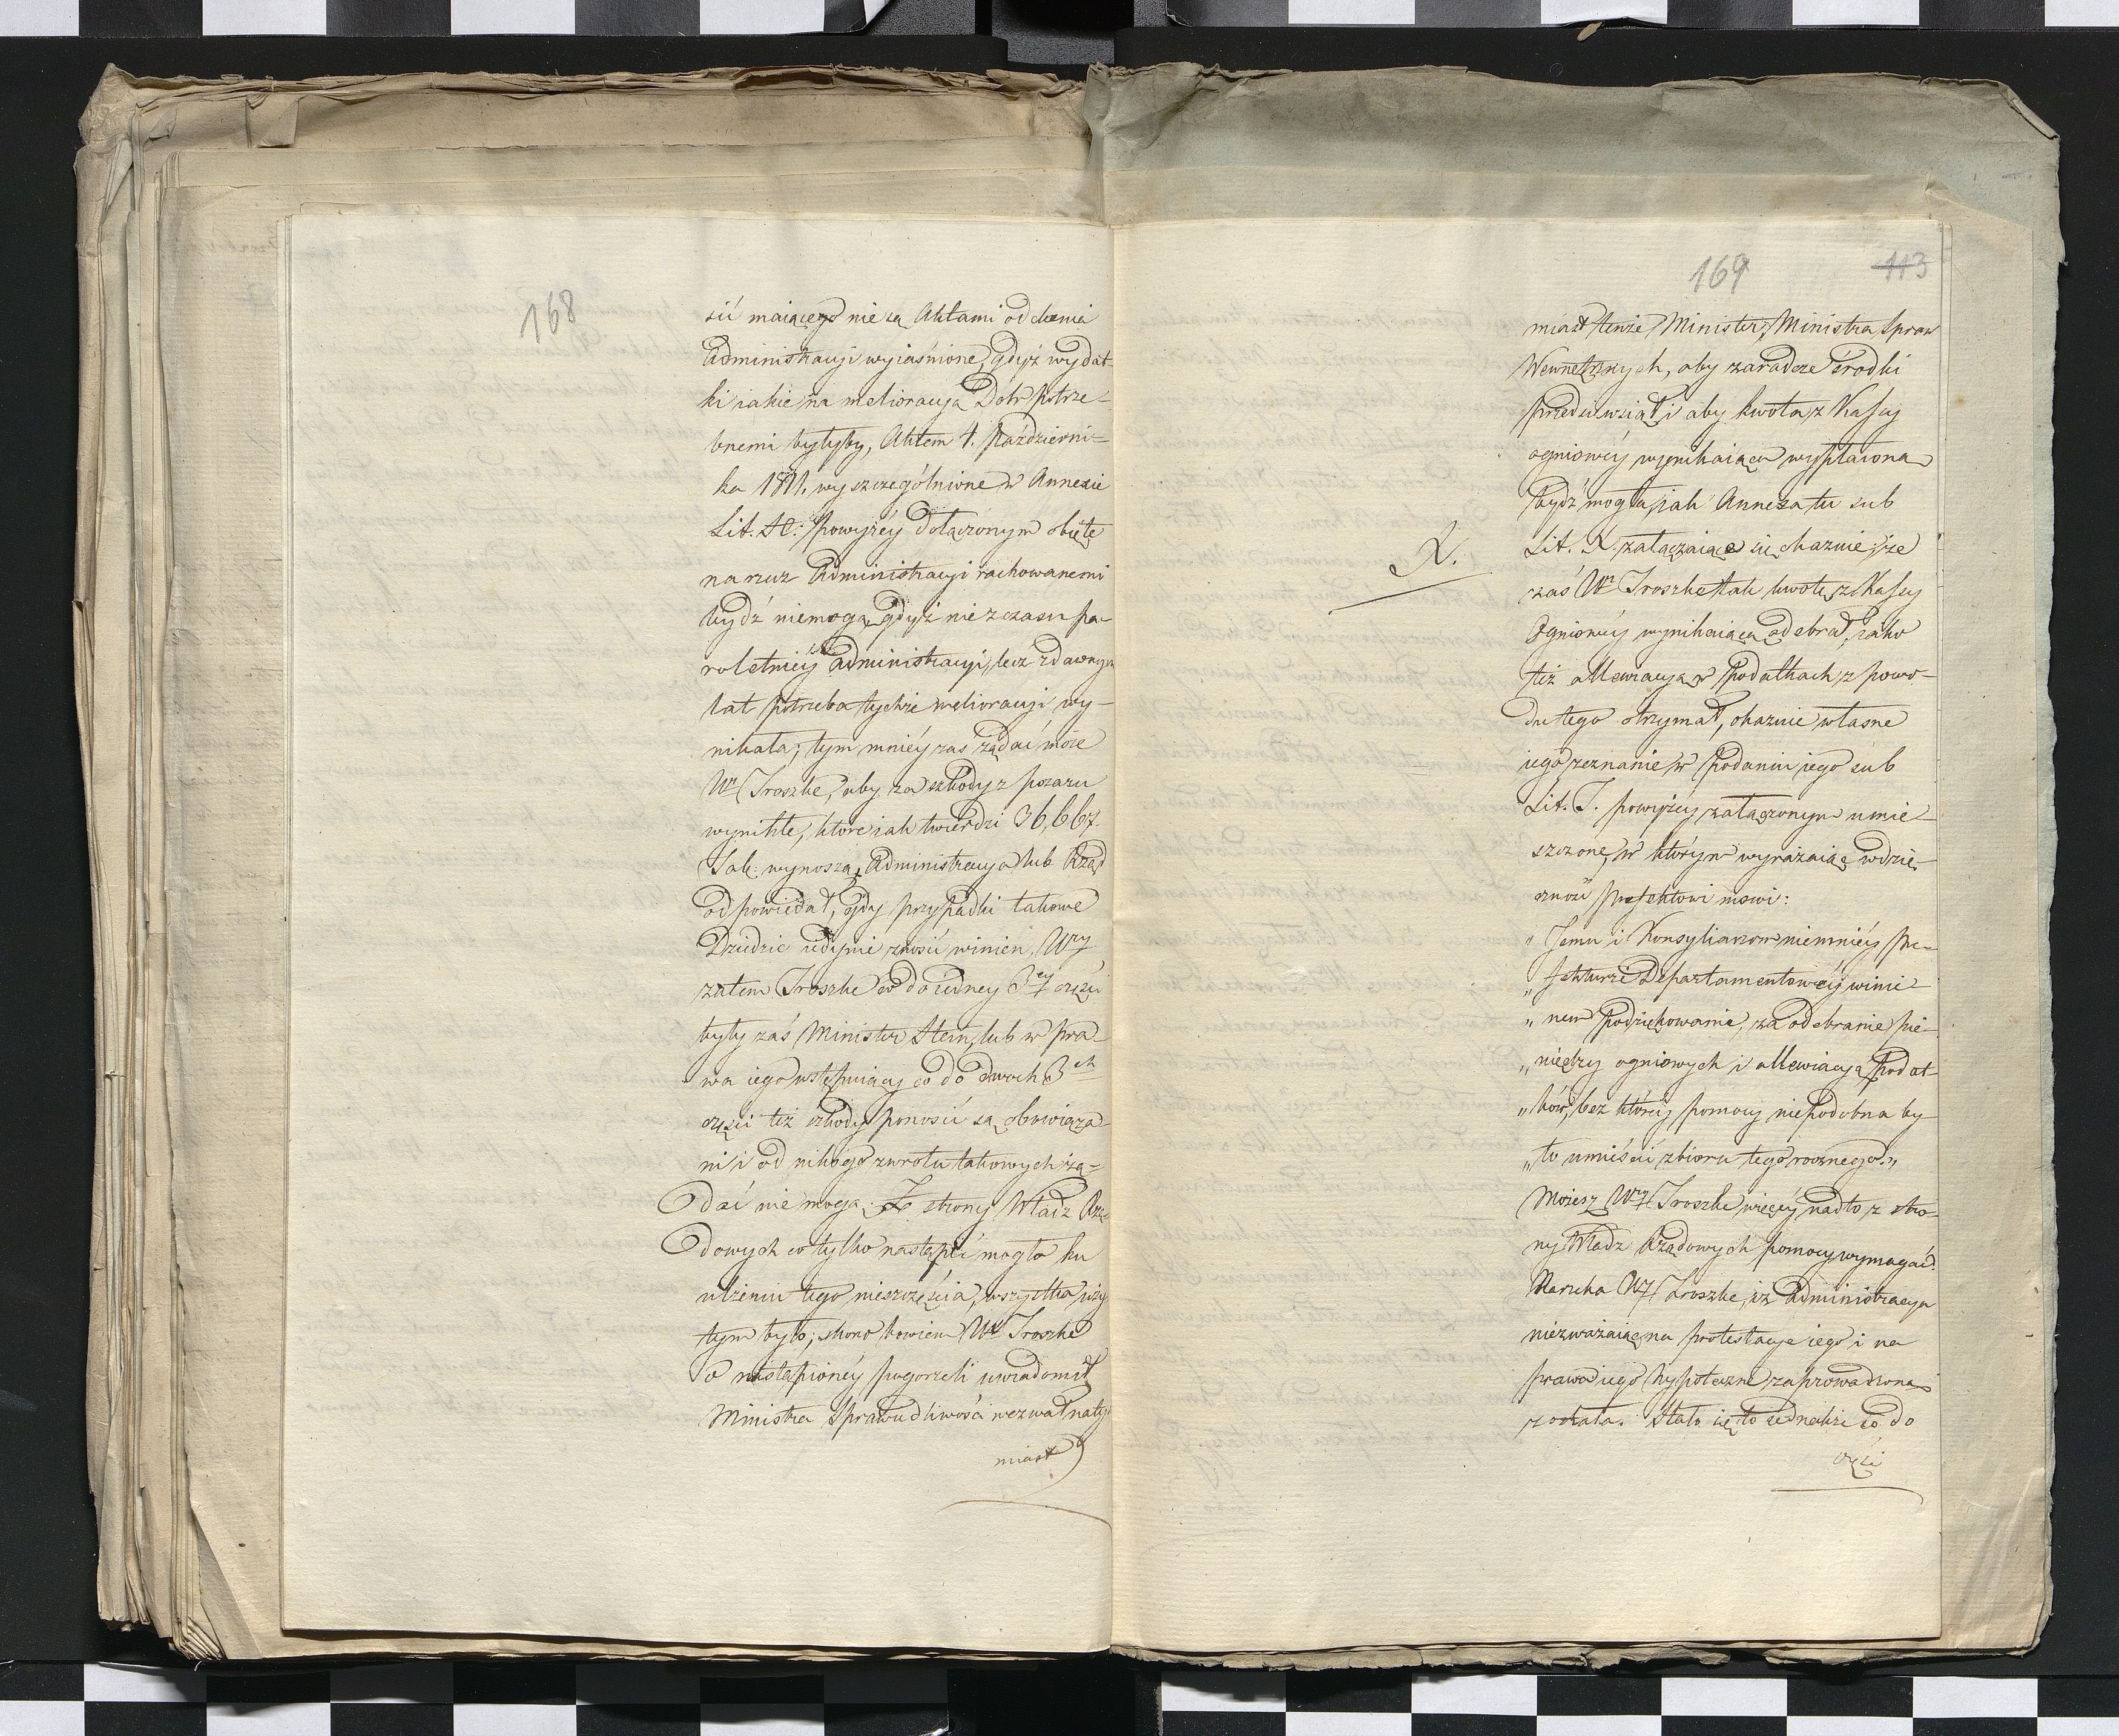 168
sić maiącego nie są Aktami oddania
Administracyi wyiaśnione, gdyż wydat-
ki iakie na melioracyą Dóbr potrze-
bnemi byłyby, Aktem 4. Październi-
ka 1811. wyszczególnione w Annexie
Lit. powyżéy dołączonym obięte
na rzecz Administracyi rachowanemi
bydź niemogą, gdyż nie z czasu pa-
roletniéy Administracyi, lecz z dawnych
lat potrzeba tychże melioracyi wy-
nikała; tym mniéy zaś żądać może
Wr. Troszke, aby za szkody z pożaru
wynikłe, które iak twierdzi 36,667.
Tal: wynoszą, Administracya lub Rząd
odpowiedał, gdy przypadki takowe
Dziedzic iedynie znosić winien, Wny
zatem Troszke co do iedney 3ey części
były zaś Minister Stein, lub w pra-
wa iego wstępuiący co do dwoch 3ch
części też szkody ponosić są obowiąza-
ni i od nikogo zwrotu takowych żą-
dać nie mogą. Ze strony Władz Rzą-
dowych co tylko nastąpić mogło ku
ulżeniu tego nieszczęścia, wszystko uży-
tym było; skoro bowiem Wr. Troszke
o nastąpionéy pogorzeli uwiadomił
Ministra Sprawiedliwości wezwał naty-
miast
169 113
miast tenże Minister, Ministra Spraw
Wewnętrznych, aby zaradcze srodki
przedsięwziął i aby kwota z Kassy
ogniowéy wynikaiąca wypłacona
bydź mogła, iak Annexa tu sub
X.
Lit. X. załączaiące się okaznie; że
zaś Wr. Troszke tak kwotę z Kassy
Ogniowéy wynikaiącą odebrał, iako
też allewiacyą w Podatkach z powo-
du tego otrzymał, okaznie własne
iego zeznanie w Podaniu iego sub
Lit. J. powyżéy załączonym umie-
szczone, w którym wyrażaiąc wdzię-
czność Prefektowi mowi:
„ Jemu i Konsyliarzom niemniéy Pre-
„ fekturze Departamentowéy winie-
„ nem podziękowanie, za odebranie pie-
„ niędzy ogniowych i allewiacyą Podat-
„ ków, bez któréy pomocy niepodobna by-
„ ło umieścić zbioru tegorocznego.„
Możesz Wny Troszke więcéy nadto z stro-
ny Władz Rządowych pomocy wymagać?
Narzeka Wny Troszke, iż Administracya
niezważaiąc na protestacye iego i na
prawa iego hypoteczne zaprowadzona
została. Stało się to iednakże co do
części